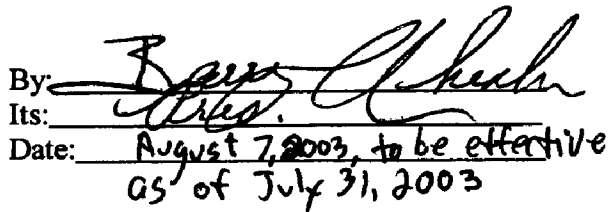 By: Barry
Its: Pres.
Date: August 7, 2003, to be effective
as of July 31, 2003